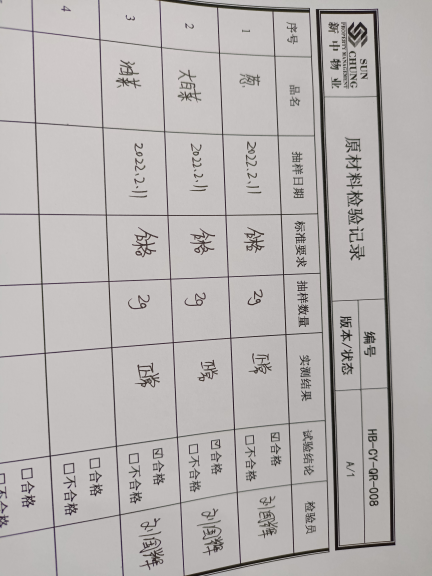 SUN
CHUNG
PROPERTY MANAGEMENT
新中物业
原材料检验记录
编号 HB-CY-QR-008
版本/状态 A/1
序号 品名 抽样日期 标准要求 抽样数量 实测结果 试验结论 检验员
1 葱 2022.2.11 合格 2g 正常 ☑合格 □不合格 刘国辉
2 大白菜 2022.2.11 合格 2g 正常 ☑合格 □不合格 刘国辉
3 油菜 2022.2.11 合格 2g 正常 ☑合格 □不合格 刘国辉
4 □合格 □不合格
□合格 □不合格